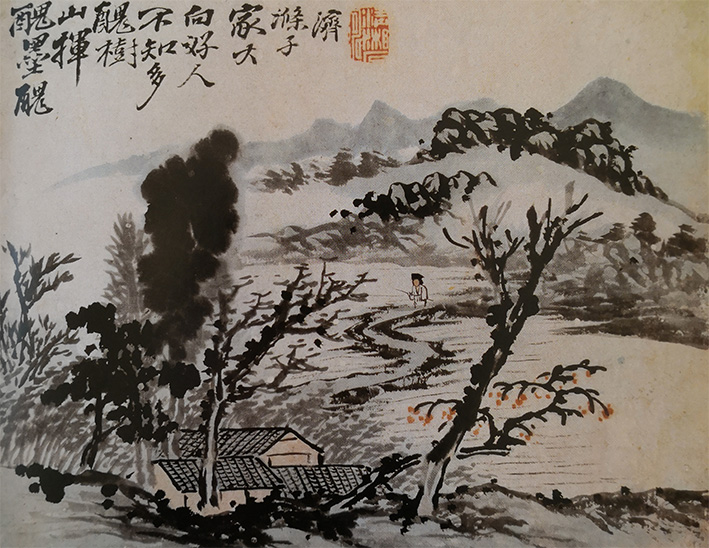 醜墨醜
山揮
醜樹
不知多
向好人
家大
滌子
濟